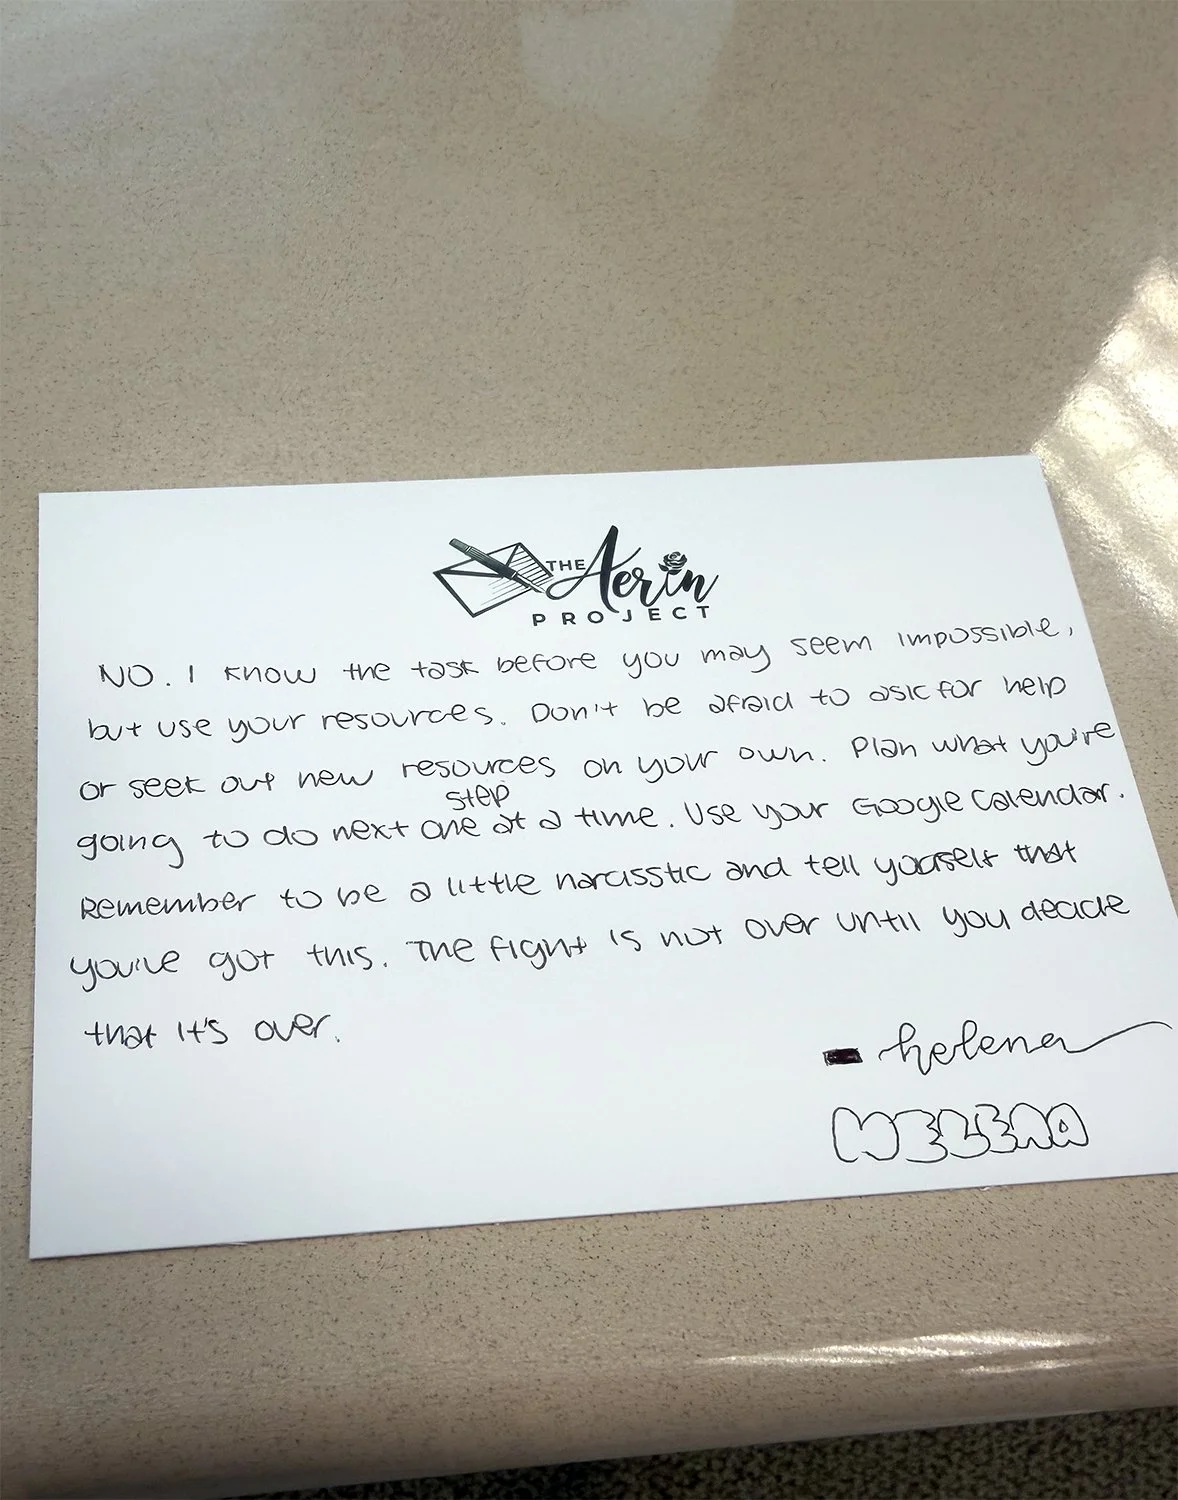 THE Aerin
PROJECT
NO. I know the task before you may seem impossible,
but use your resources. Don't be afraid to ask for help
or seek out new resources on your own. Plan what you're
step
going to do next one at a time. Use your Google Calendar.
Remember to be a little narcisstic and tell yourself that
you've got this. The fight is not over until you decide
that it's over.
- helena
HELENA